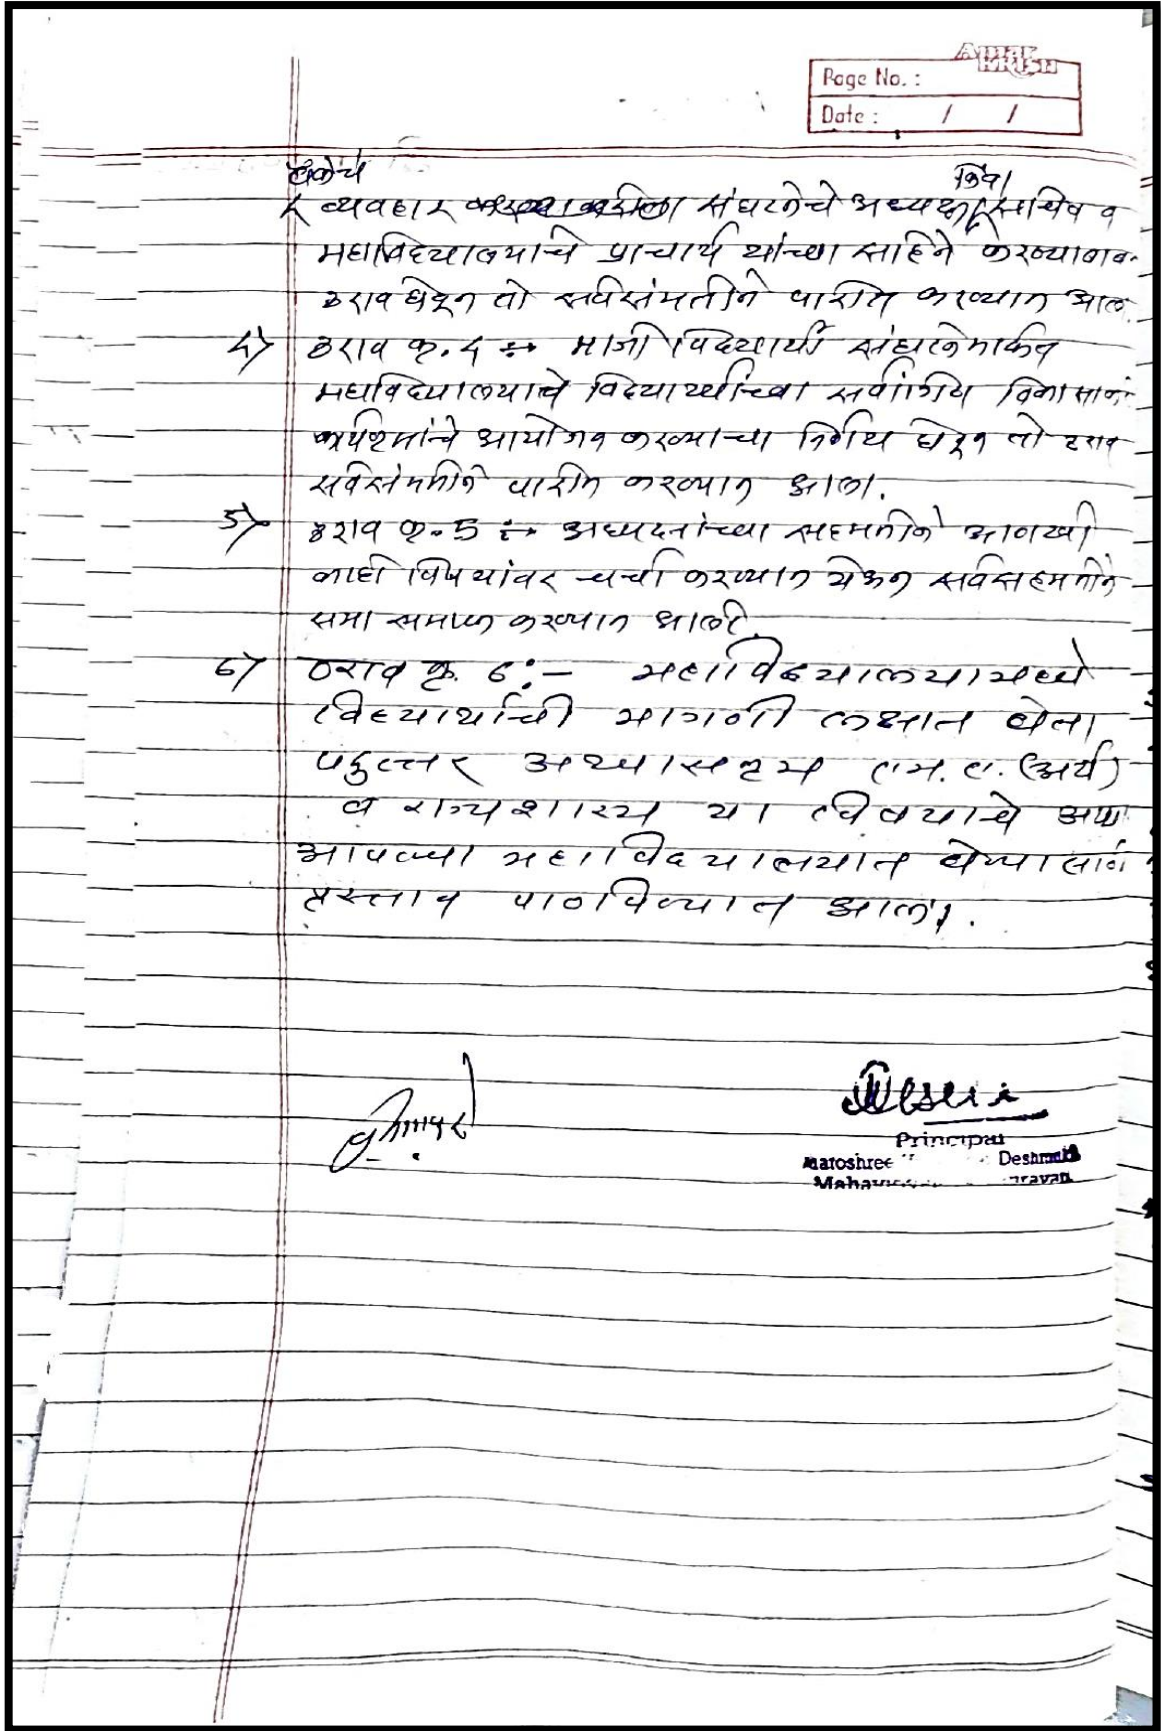 Page No. :
Date : / /
बँकेचे किंवा
व्यवहार संघटनेचे अध्यक्ष सचिव व
महाविद्यालयाचे प्राचार्य यांच्या सहिने करण्याबाब
ठराव घेवून तो सर्वसंमतीने पारीत करण्यात आल
4) ठराव कृ. 4 :→ माजी विद्यार्थी संघटनेमार्फत
महाविद्यालयाचे विद्यार्थ्यांच्या सर्वांगिण विकासा
कार्यक्रमांचे आयोजन करण्याचा निर्णय घेवून तो ठराव
सर्वसंमतीने पारीत करण्यात आला.
5) ठराव कृ. 5 :→ अध्यक्षांच्या सहमतीने आणखी
काही विषयांवर चर्चा करण्यात येऊन सर्वसहमतीने
सभा समाप्त करण्यात आली.
6) ठराव कृ. 6 :- महाविद्यालयामध्ये
विद्यार्थाची मागणी लक्षात घेता
पदुत्तर अभ्यासक्रम एम. ए. (अर्थ)
व राज्यशास्त्र या विषयाचे
आपल्या महाविद्यालयात घेण्यासाठी
प्रस्ताव पाठविण्यात आला.
Principal
Matoshree Deshmukh